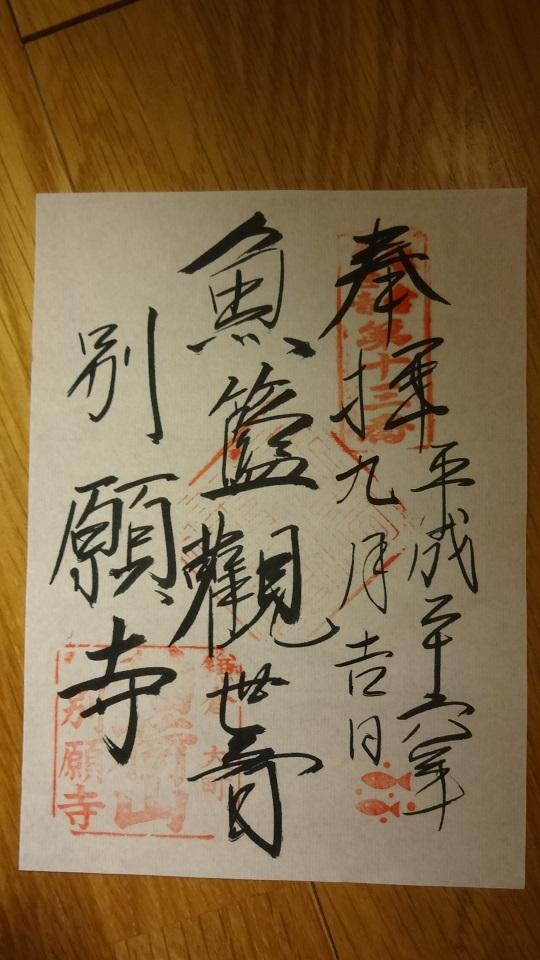 奉拝
平成二十六年
九月吉日
魚籃觀世音
別願寺
第十三番
鎌倉 大町
別願寺